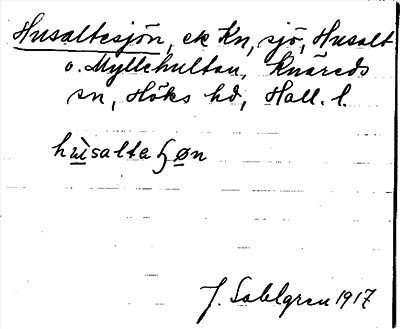 Husaltesjön, ek Kn, sjö, Husalt
o. Myllehultan, Knäreds
sn, Höks hd, Hall. l.
hùsalta ʃøn
J. Sahlgren 1917